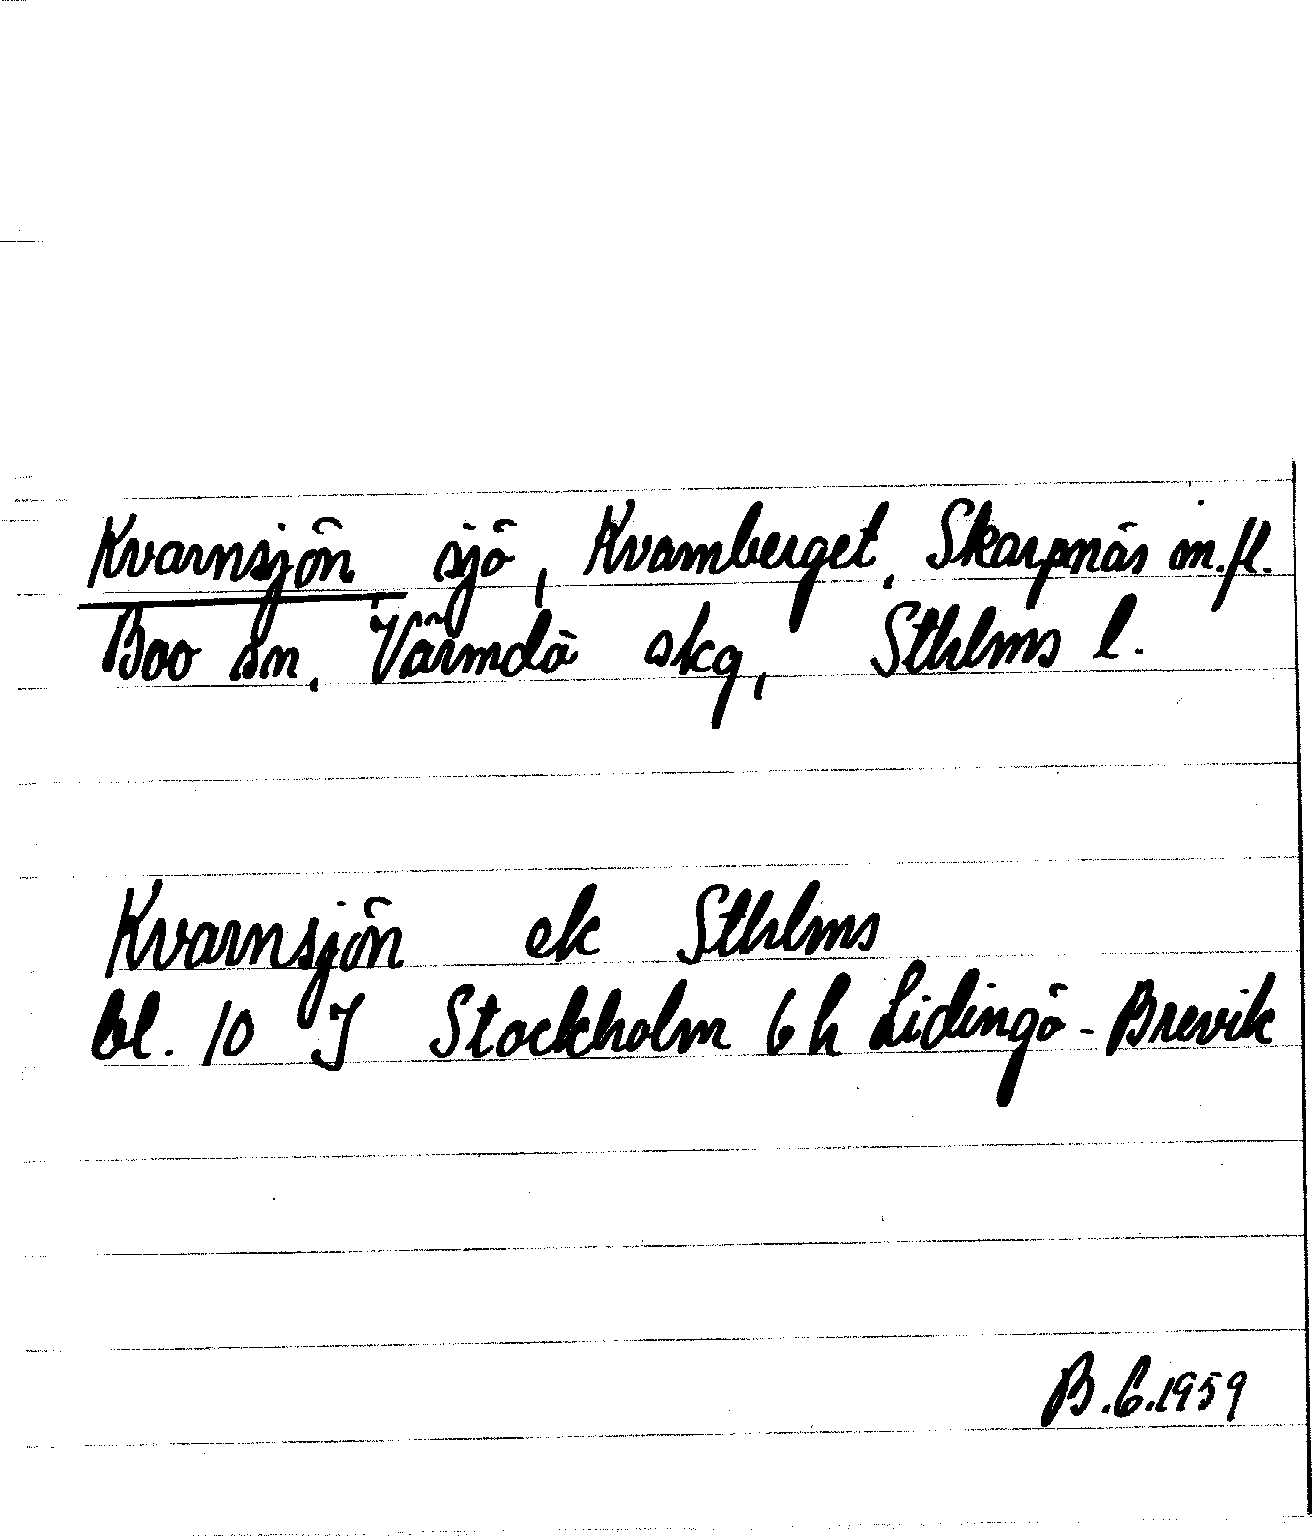 Kvarnsjön sjö, Kvarnberget, Skarpnäs m.fl.
Boo sn, Värmdö skg, Sthlms l.
Kvarnsjön ek Sthlms
bl. 10 J Stockholm 6 h Lidingö-Brevik
B.G.1959